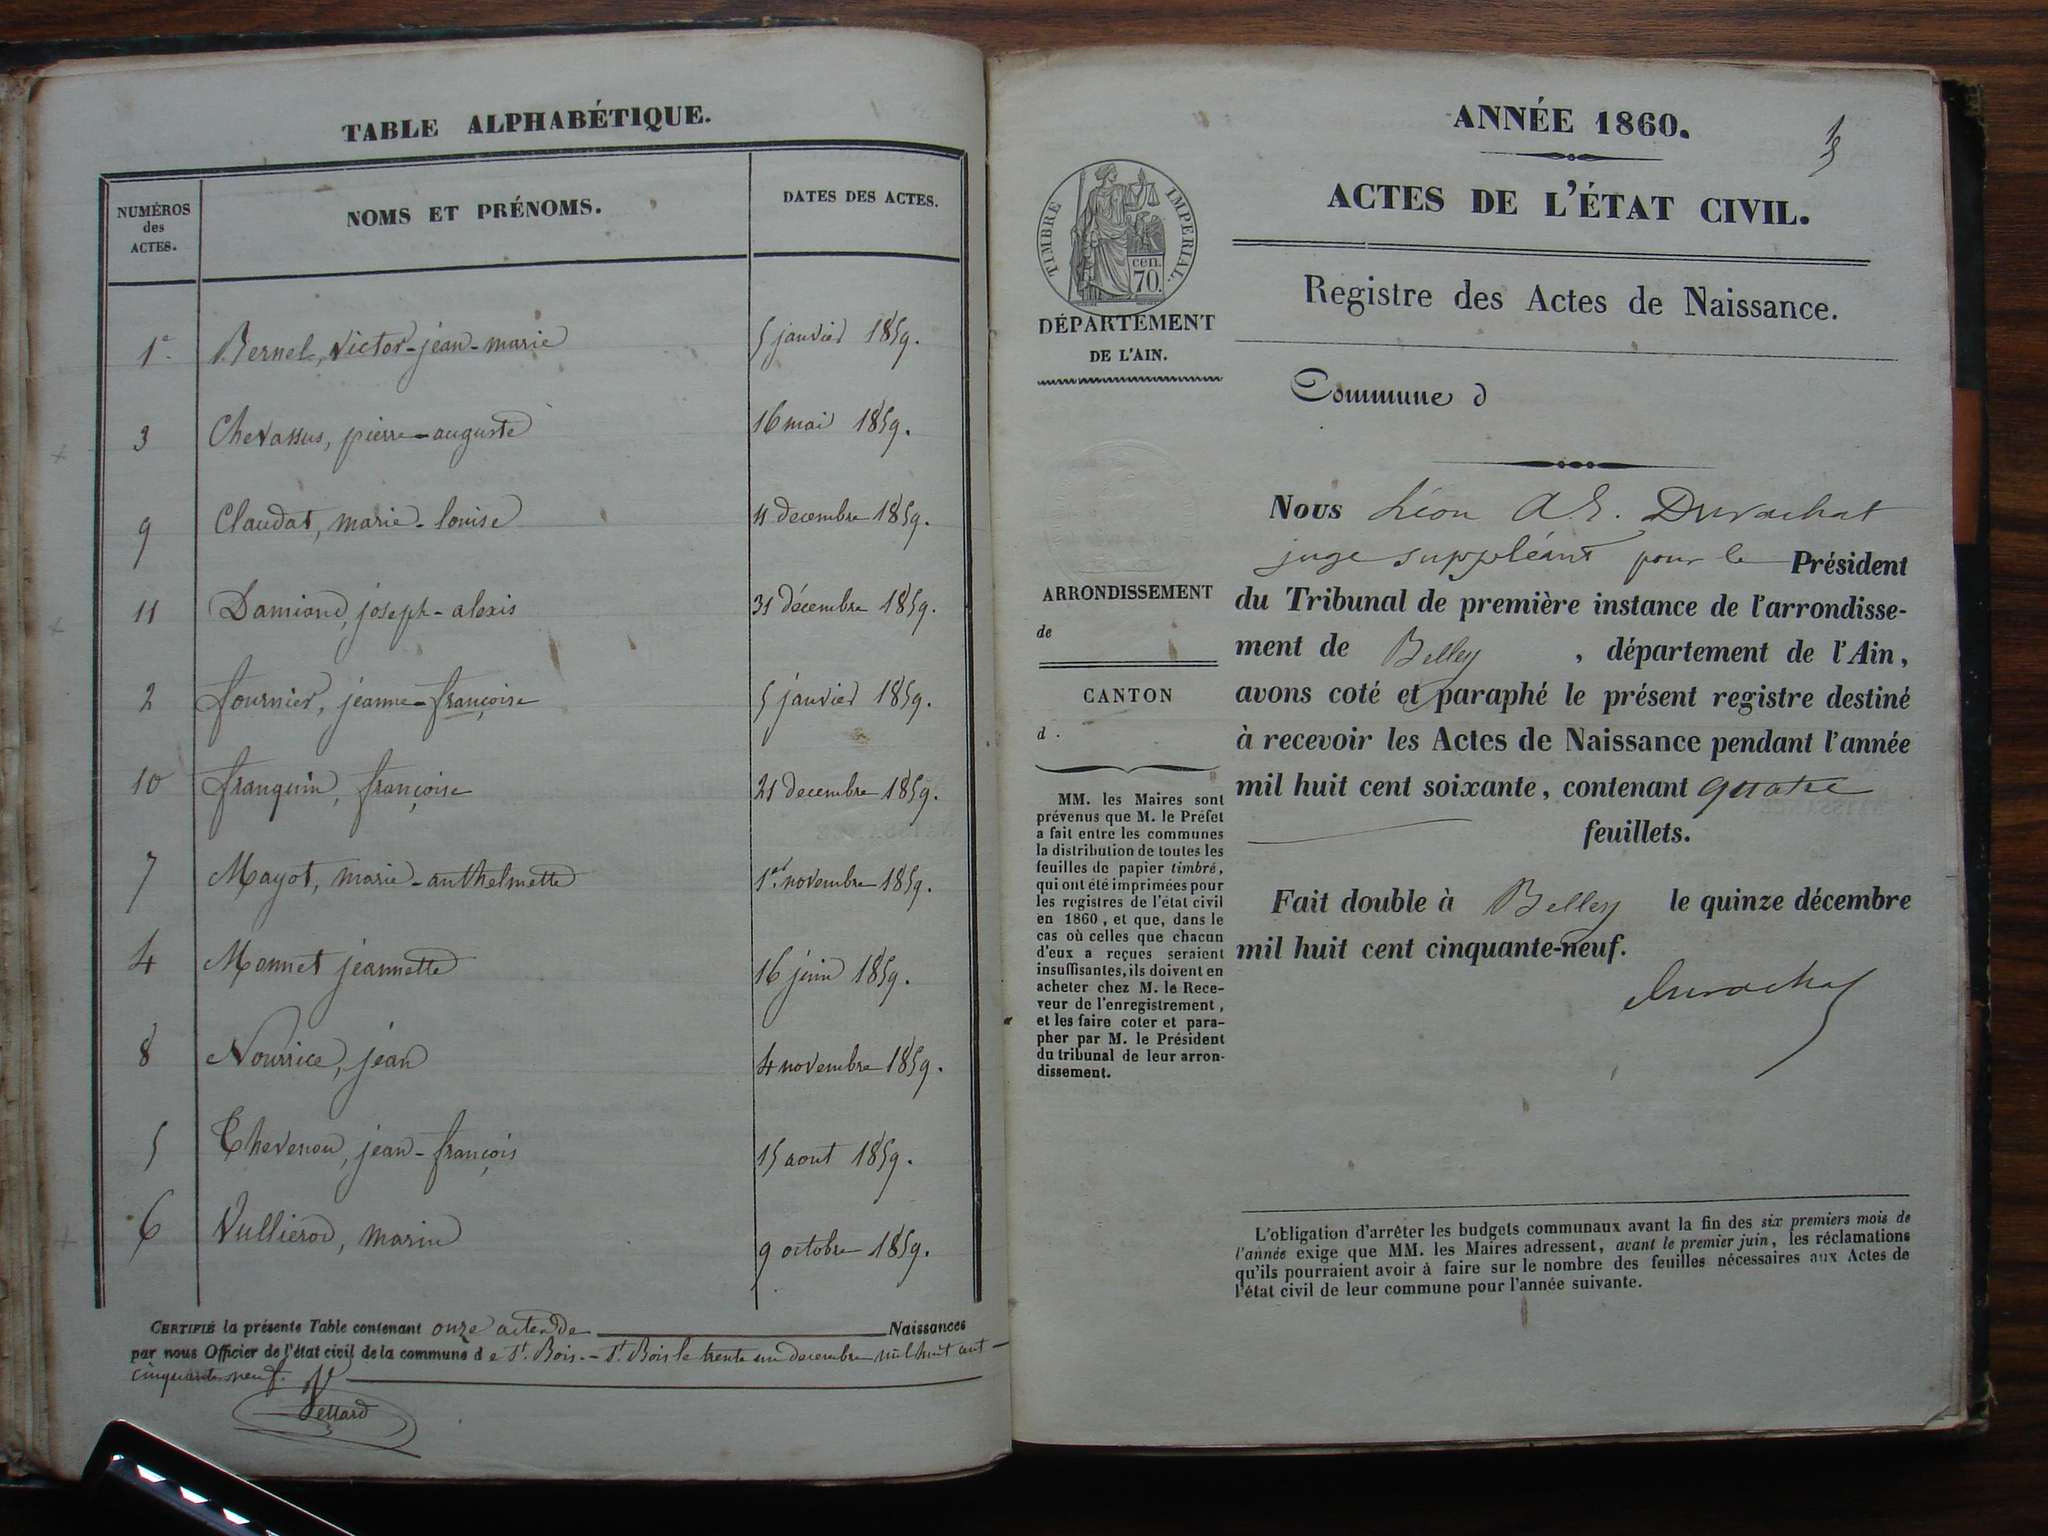 TABLE ALPHABÉTIQUE.
NUMÉROS des ACTES. NOMS ET PRÉNOMS. DATES DES ACTES.
1er Bernel, victor-jean-marie 5 janvier 1859.
3 Chevassus, pierre-auguste 16 mai 1859.
9 Claudat, marie-louise 11 decembre 1859.
11 Damiand, joseph-alexis 31 décembre 1859.
2 fournier, jeanne-françoise 5 janvier 1859.
10 franquin, françoise 21 decembre 1859.
7 Mayot, marie-anthelmette 1er novembre 1859.
4 Monnet jeannette 16 juin 1859.
8 Nourrice, jean 4 novembre 1859.
5 Thevenon, jean-françois 15 aout 1859.
6 Vullierod, marin 9 octobre 1859.
CERTIFIÉ la présente Table contenant onze actes de Naissances
par nous Officier de l'état civil de la commune d e St. Bois. - St. Bois le trente un decembre mil huit cent
cinquante neuf.
ANNÉE 1860.
ACTES DE L'ÉTAT CIVIL.
Registre des Actes de Naissance.
TIMBRE IMPERIAL.
cen.
70.
DÉPARTEMENT
DE L'AIN.
Commune d
ARRONDISSEMENT
de
CANTON
d .
MM. les Maires sont
prévenus que M. le Préfet
a fait entre les communes
la distribution de toutes les
feuilles de papier timbré,
qui ont été imprimées pour
les registres de l'état civil
en 1860, et que, dans le
cas où celles que chacun
d'eux a reçues seraient
insuffisantes, ils doivent en
acheter chez M. le Rece-
veur de l'enregistrement,
et les faire coter et para-
pher par M. le Président
du tribunal de leur arron-
dissement.
Nous Léon A. E. Duvachat
juge suppléant pour le Président
du Tribunal de première instance de l'arrondisse-
ment de Belley , département de l'Ain,
avons coté et paraphé le présent registre destiné
à recevoir les Actes de Naissance pendant l'année
mil huit cent soixante, contenant quatre
feuillets.
Fait double à Belley le quinze décembre
mil huit cent cinquante-neuf.
Duvachat
L'obligation d'arrêter les budgets communaux avant la fin des six premiers mois de
l'année exige que MM. les Maires adressent, avant le premier juin, les réclamations
qu'ils pourraient avoir à faire sur le nombre des feuilles nécessaires aux Actes de
l'état civil de leur commune pour l'année suivante.